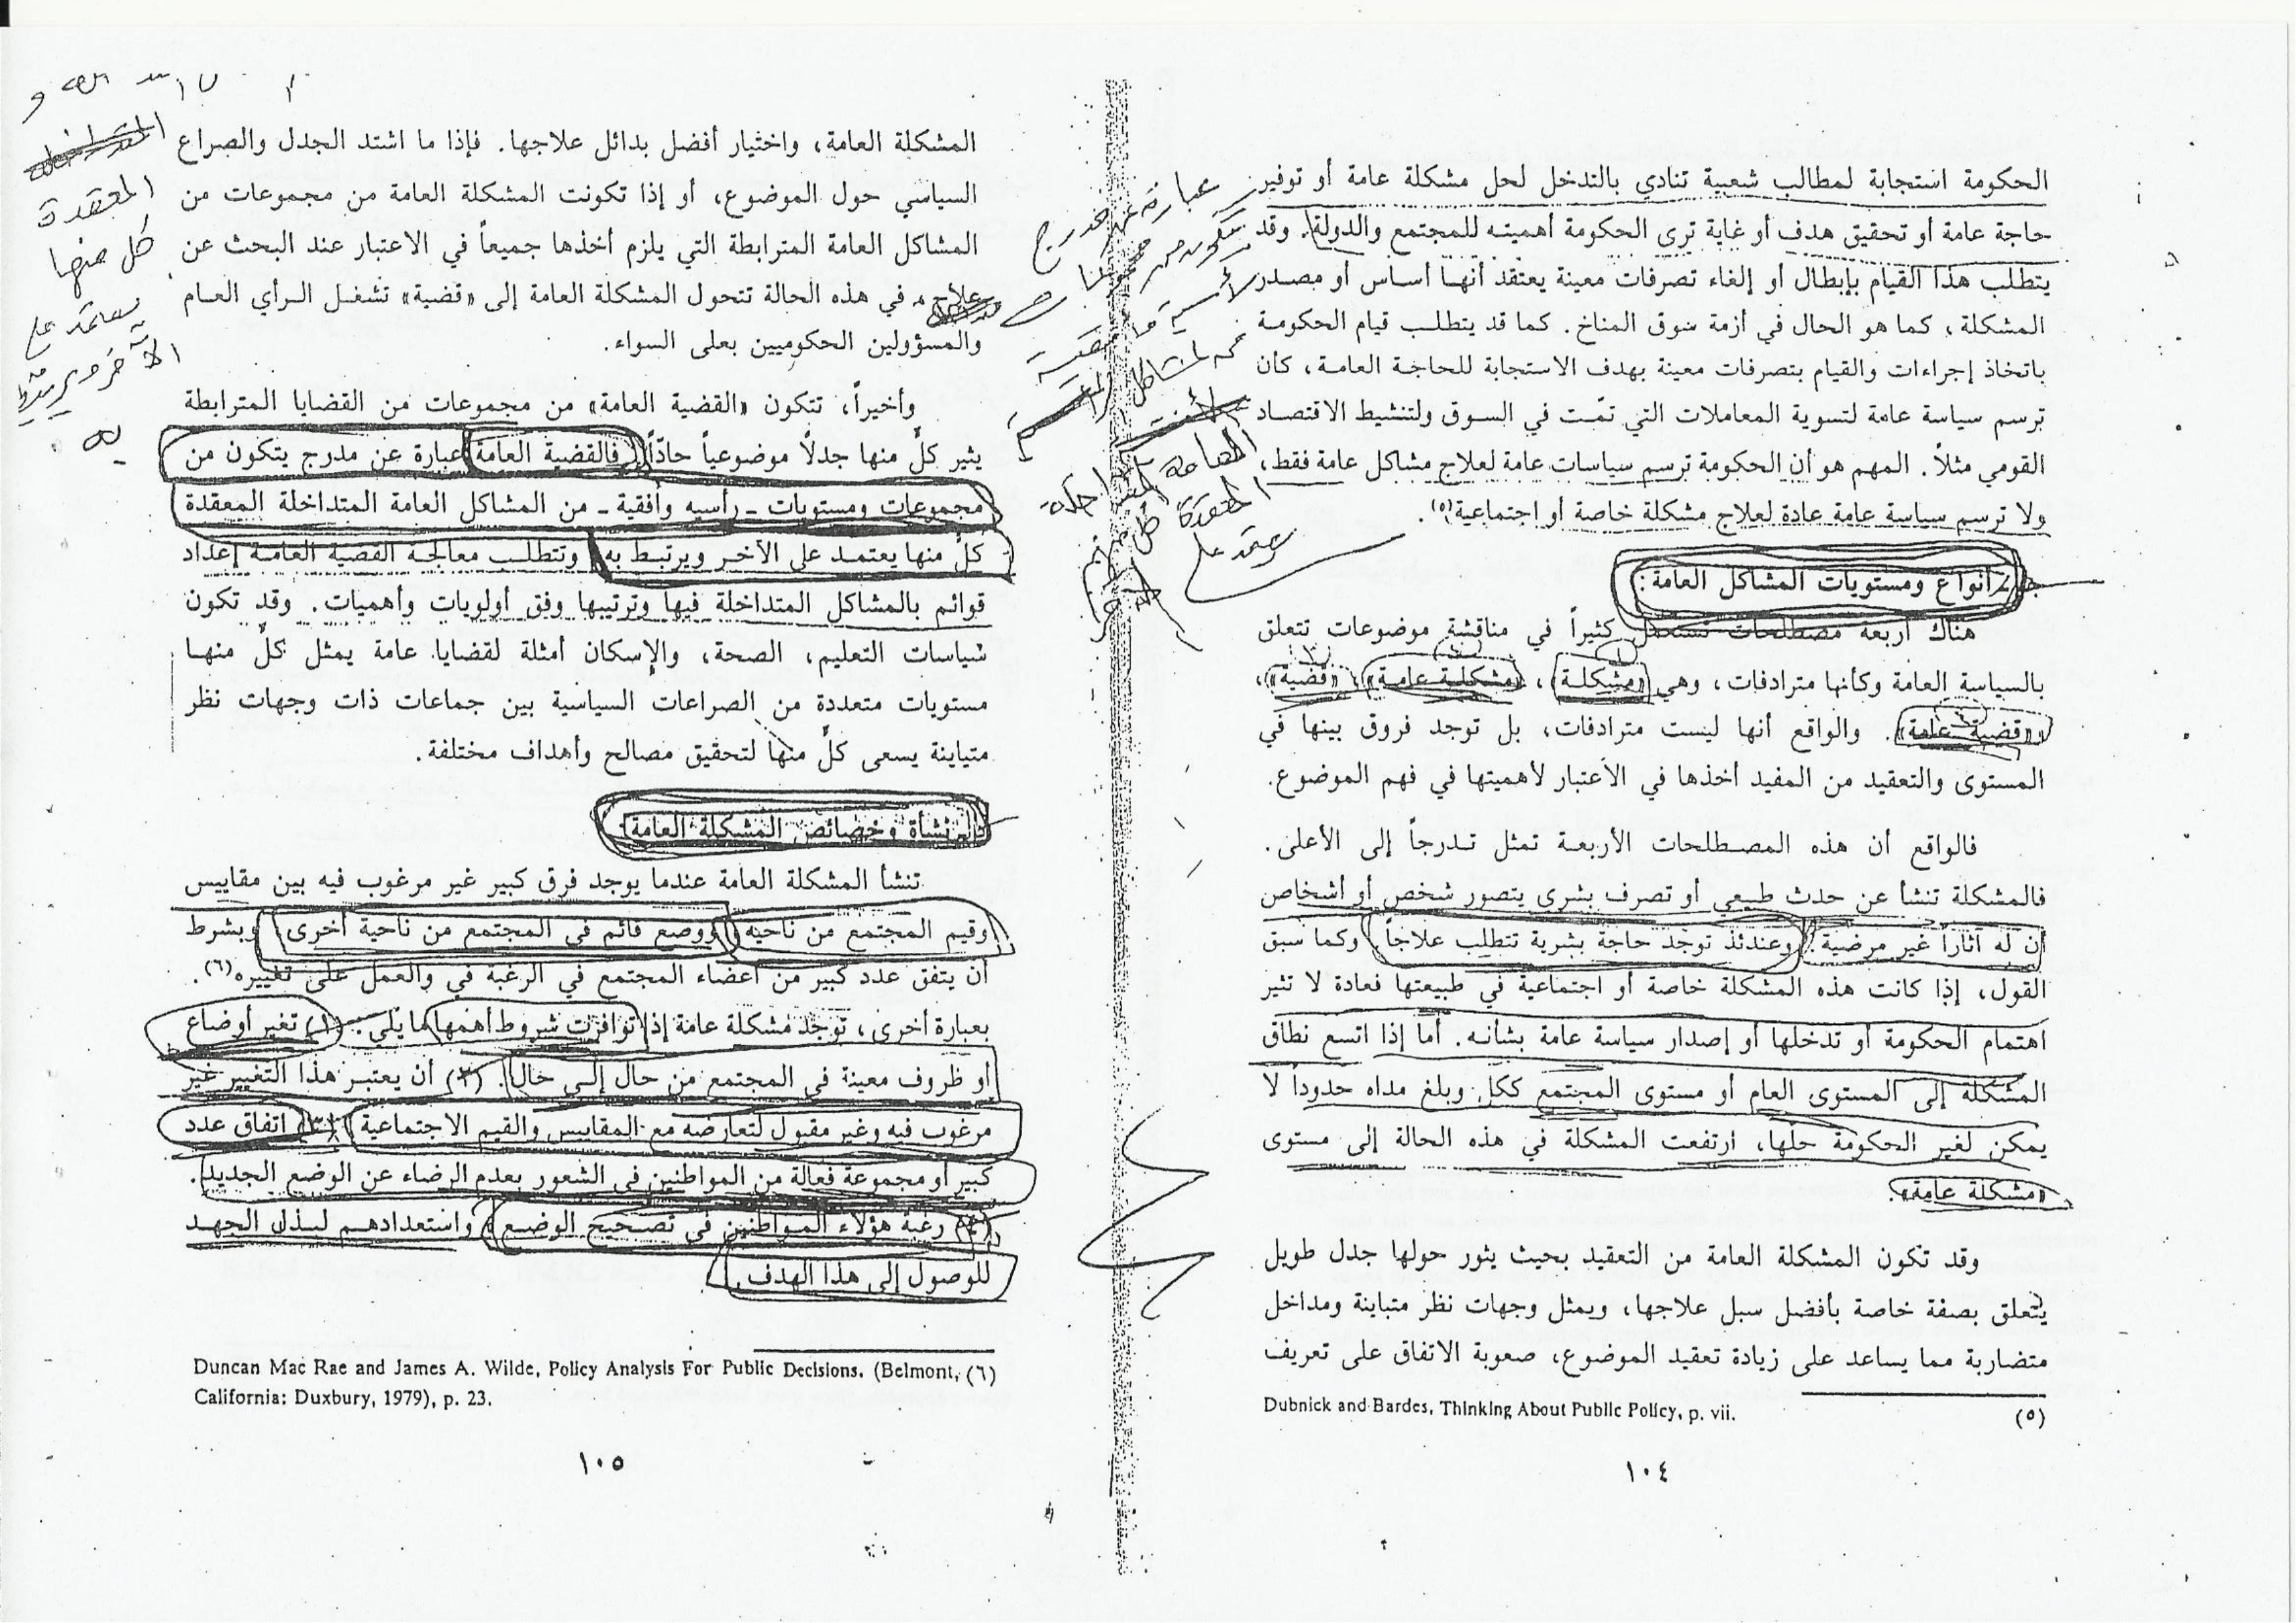 الحكومة استجابة لمطالب شعبية تنادي بالتدخل لحل مشكلة عامة أو توفير
حاجة عامة أو تحقيق هدف أو غاية ترى الحكومة أهميته للمجتمع والدولة. وقد
يتطلب هذا القيام بإبطال أو إلغاء تصرفات معينة يعتقد أنها أساس أو مصدر
المشكلة، كما هو الحال في أزمة سوق المناخ. كما قد يتطلب قيام الحكومة
باتخاذ إجراءات والقيام بتصرفات معينة بهدف الاستجابة للحاجة العامة، كأن
ترسم سياسة عامة لتسوية المعاملات التي تمّت في السوق ولتنشيط الاقتصاد
القومي مثلاً. المهم هو أن الحكومة ترسم سياسات عامة لعلاج مشاكل عامة فقط،
ولا ترسم سياسة عامة عادة لعلاج مشكلة خاصة أو اجتماعية(٥).
أنواع ومستويات المشاكل العامة:
هناك أربعة مصطلحات تستعمل كثيراً في مناقشة موضوعات تتعلق
بالسياسة العامة وكأنها مترادفات، وهي «مشكلة»، «مشكلة عامة»، «قضية»،
«قضية عامة». والواقع أنها ليست مترادفات، بل توجد فروق بينها في
المستوى والتعقيد من المفيد أخذها في الاعتبار لأهميتها في فهم الموضوع.
فالواقع أن هذه المصطلحات الأربعة تمثل تدرجاً إلى الأعلى.
فالمشكلة تنشأ عن حدث طبيعي أو تصرف بشري يتصور شخص أو أشخاص
أن له آثاراً غير مرضية. وعندئذ توجد حاجة بشرية تتطلب علاجاً. وكما سبق
القول، إذا كانت هذه المشكلة خاصة أو اجتماعية في طبيعتها فعادة لا تثير
اهتمام الحكومة أو تدخلها أو إصدار سياسة عامة بشأنه. أما إذا اتسع نطاق
المشكلة إلى المستوى العام أو مستوى المجتمع ككل وبلغ مداه حدوداً لا
يمكن لغير الحكومة حلها، ارتفعت المشكلة في هذه الحالة إلى مستوى
«مشكلة عامة».
وقد تكون المشكلة العامة من التعقيد بحيث يثور حولها جدل طويل
يتعلق بصفة خاصة بأفضل سبل علاجها، ويمثل وجهات نظر متباينة ومداخل
متضاربة مما يساعد على زيادة تعقيد الموضوع، صعوبة الاتفاق على تعريف
(٥) Dubnick and Bardes, Thinking About Public Policy, p. vii.
١٠٤
المشكلة العامة، واختيار أفضل بدائل علاجها. فإذا ما اشتد الجدل والصراع
السياسي حول الموضوع، أو إذا تكونت المشكلة العامة من مجموعات من
المشاكل العامة المترابطة التي يلزم أخذها جميعاً في الاعتبار عند البحث عن
علاج، في هذه الحالة تتحول المشكلة العامة إلى «قضية» تشغل الرأي العام
والمسؤولين الحكوميين بعلى السواء.
وأخيراً، تتكون «القضية العامة» من مجموعات من القضايا المترابطة
يثير كلّ منها جدلاً موضوعياً حادّاً. فالقضية العامة عبارة عن مدرج يتكون من
مجموعات ومستويات - رأسيه وأفقية - من المشاكل العامة المتداخلة المعقدة
كلّ منها يعتمد على الآخر ويرتبط به. وتتطلب معالجة القضية العامة إعداد
قوائم بالمشاكل المتداخلة فيها وترتيبها وفق أولويات وأهميات. وقد تكون
سياسات التعليم، الصحة، والإسكان أمثلة لقضايا عامة يمثل كلّ منها
مستويات متعددة من الصراعات السياسية بين جماعات ذات وجهات نظر
متباينة يسعى كلّ منها لتحقيق مصالح وأهداف مختلفة.
نشأة وخصائص المشكلة العامة:
تنشأ المشكلة العامة عندما يوجد فرق كبير غير مرغوب فيه بين مقاييس
وقيم المجتمع من ناحية، ووضع قائم في المجتمع من ناحية أخرى، وبشرط
أن يتفق عدد كبير من أعضاء المجتمع في الرغبة في والعمل على تغييره(٦).
بعبارة أخرى، توجد مشكلة عامة إذا توافرت شروط أهمها ما يلي: (١) تغير أوضاع
أو ظروف معينة في المجتمع من حال إلى حال. (٢) أن يعتبر هذا التغيير غير
مرغوب فيه وغير مقبول لتعارضه مع المقاييس والقيم الاجتماعية (٣) اتفاق عدد
كبير أو مجموعة فعالة من المواطنين في الشعور بعدم الرضاء عن الوضع الجديد.
(٤) رغبة هؤلاء المواطنين في تصحيح الوضع، واستعدادهم لبذل الجهد
للوصول إلى هذا الهدف.
(٦) Duncan Mac Rae and James A. Wilde, Policy Analysis For Public Decisions. (Belmont,
California: Duxbury, 1979), p. 23.
١٠٥
المعقدة
كل منها
يعتمد على
الآخر ويرتبط
به
عبارة عن مدرج
يتكون من مجموعات